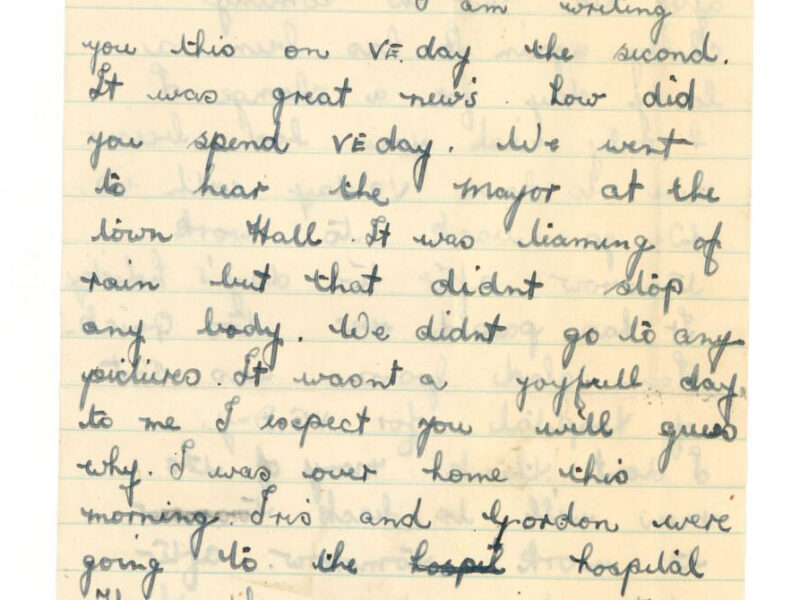 I am writing
you this on VE. day the second.
It was great news. how did
you spend VE day. We went
to hear the Mayor at the
town Hall. It was tiaming of
rain but that didnt stop
any body. We didnt go to any
pictures. It wasnt a joyfull day
to me I expect you will guess
why. I was over home this
morning. Iris and Gordon were
going to the hospit hospital